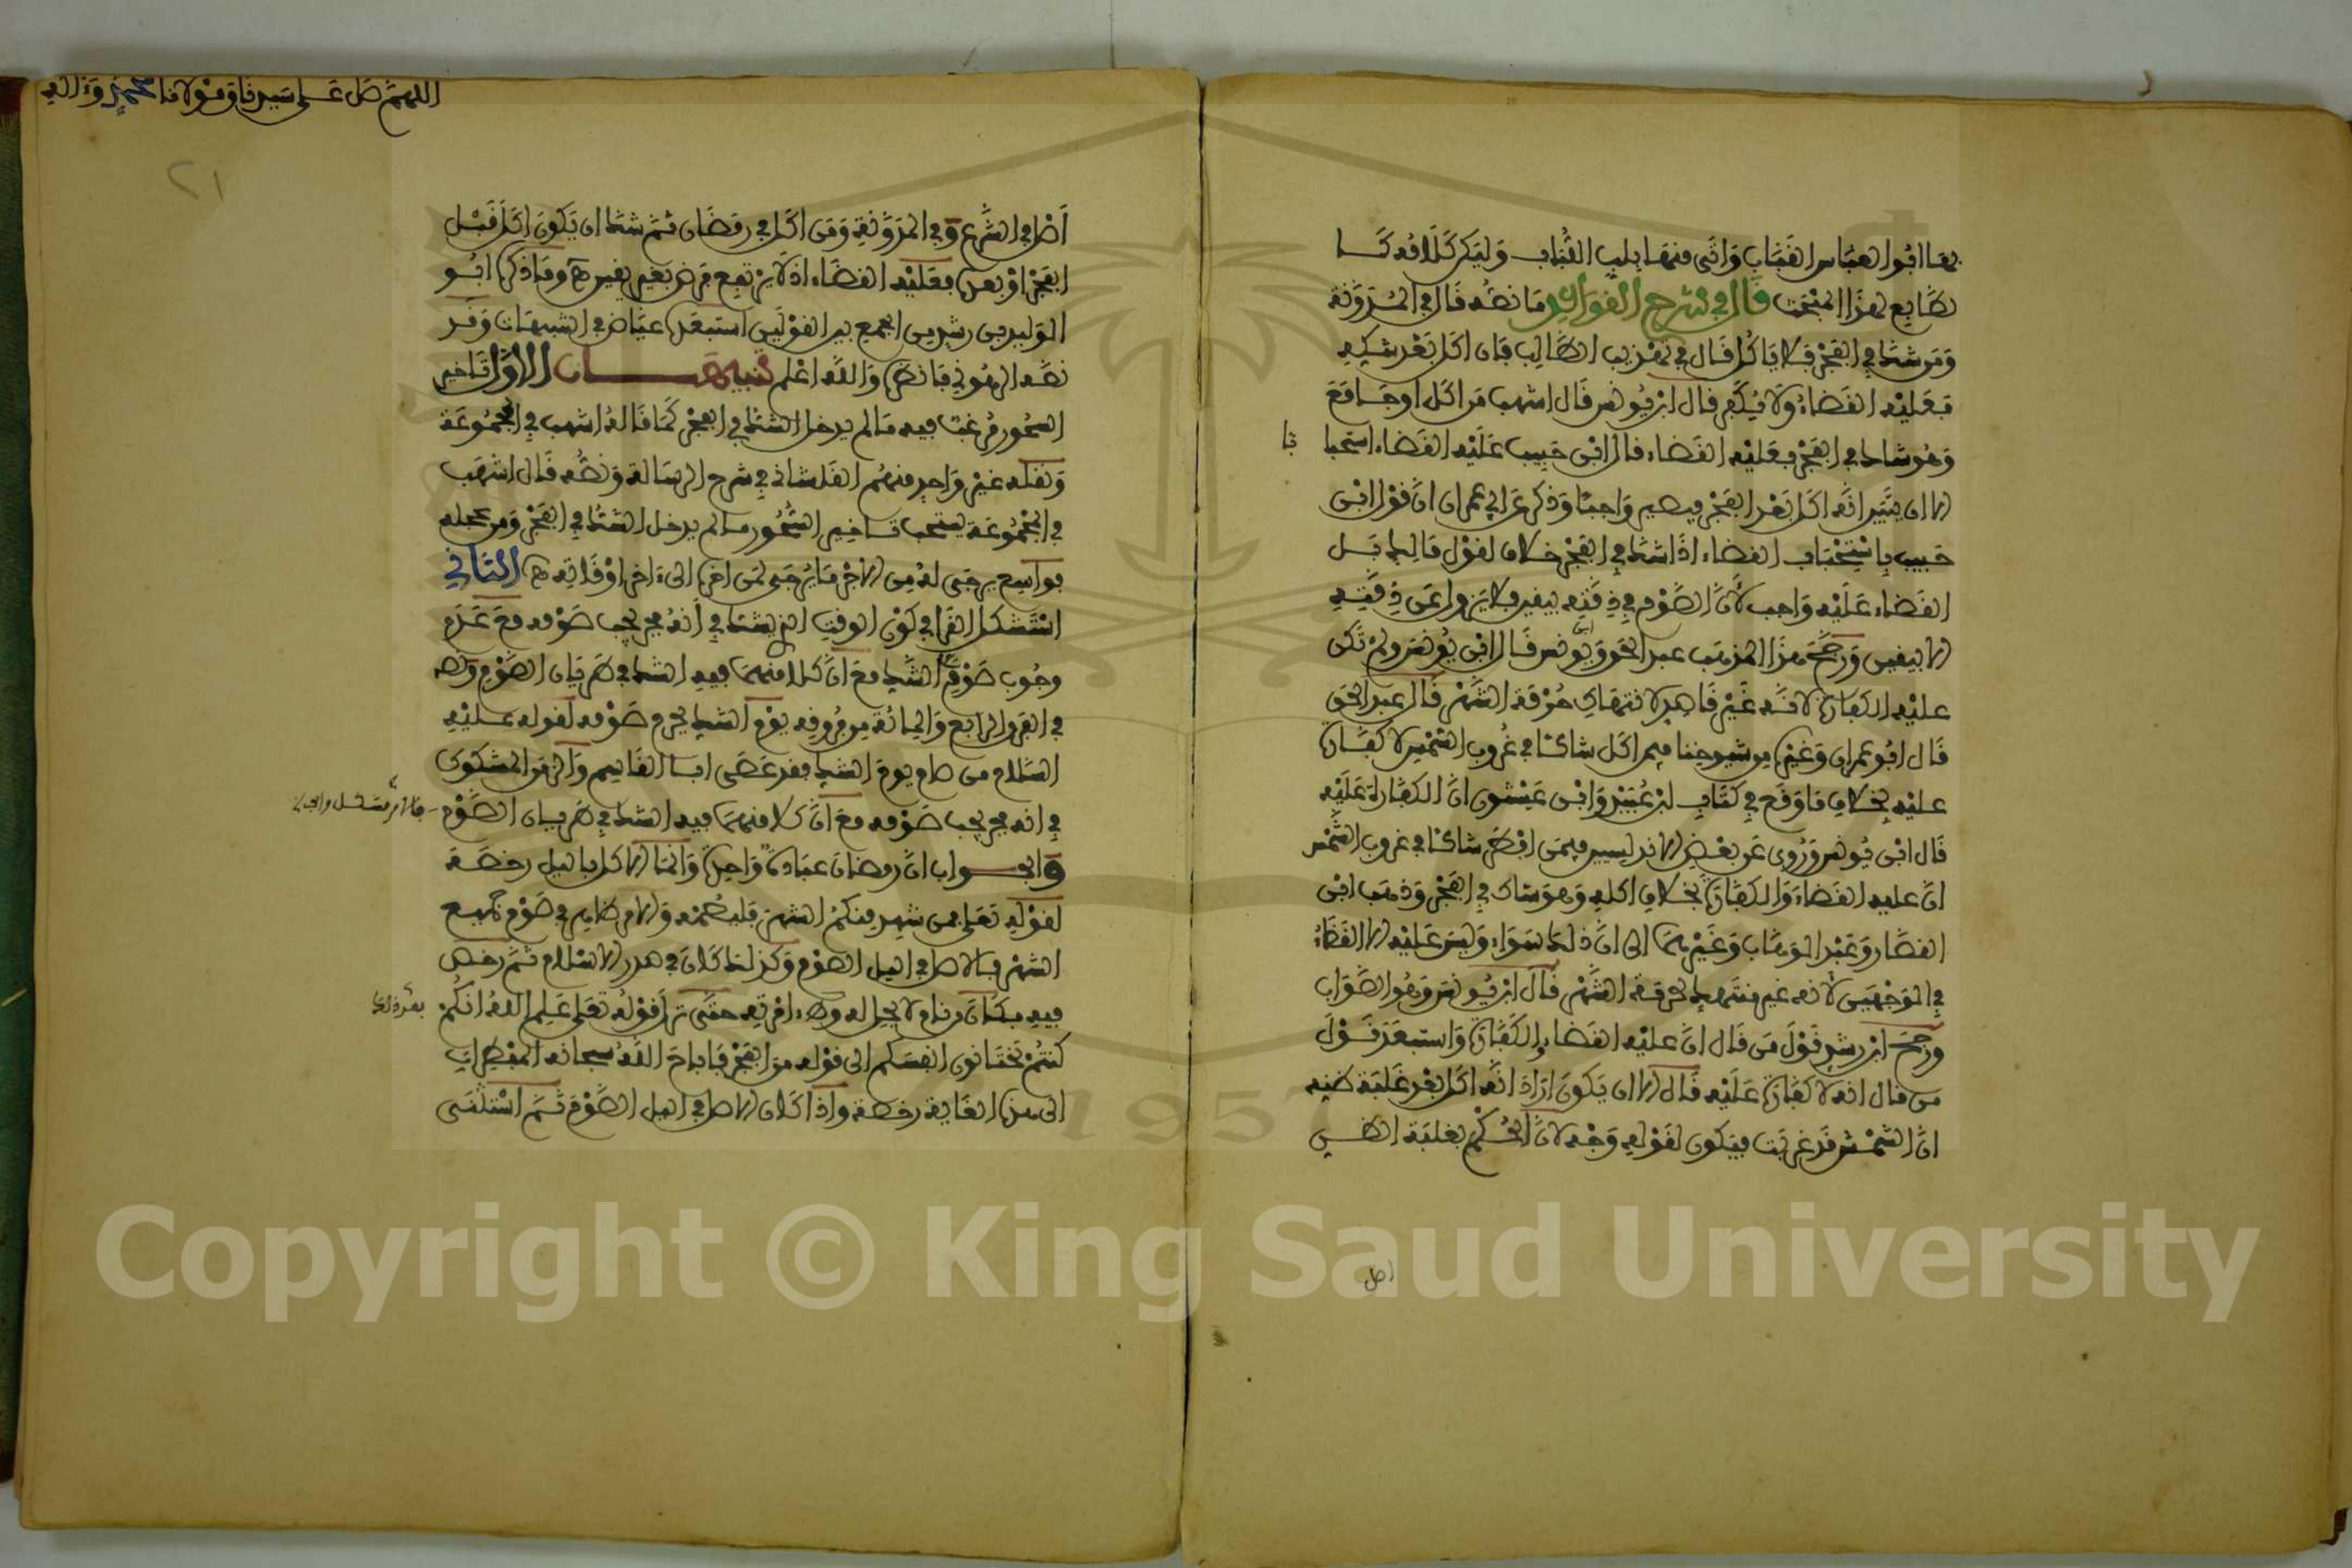 بها ابو العباس القباب واتى منها بلب اللباب وليكن كلامه كا
لطابع لهذا المبحث قال في شرح القواعد ما نصه قال في المدونة
ومن شك في الفجر فلا ياكل قال في تهذيب الطالب فان اكل بعد شكه
فعليه القضاء ولا يكفر قال ابن يونس قال اشهب من اكل او جامع
وهو شاك في الفجر فعليه القضاء قال ابن حبيب عليه القضاء استحبا
با
الا ان يتبين انه اكل بعد الفجر فيصير واجبا وذكر عن ابي عمران ان قول ابن
حبيب باستحباب القضاء اذا شك في الفجر خلاف لقول مالك بل
القضاء عليه واجب لان الصوم في ذمته بيقين فلا يزول عن ذمته
الا بيقين ورجح هذا المذهب عبد الحق وابن يونس قال ابن يونس ولم تكن
عليه الكفارة لانه غير قاصد لانتهاك حرمة الشهر قال عبد الحق
قال ابو عمران وغيره من شيوخنا فيمن اكل شاكا في غروب الشمس لا كفارة
عليه بخلاف ما وقع في كتاب ابن عبيد وابن عيشون ان الكفارة عليه
قال ابن يونس وروي عن بعض الاندلسيين فيمن افطر شاكا في غروب الشمس
ان عليه القضاء والكفارة بخلاف اكله وهو شاك في الفجر وذهب ابن
القصار وعبد الوهاب وغيرهما الى ان ذلك سواء وليس عليه الا القضاء
في الوجهين لانه غير منتهك لحرمة الشهر قال ابن يونس وهو الصواب
ورجح ابن رشد قول من قال ان عليه القضاء والكفارة واستبعد قول
من قال انه لا كفارة عليه قال الا ان يكون اراد انه اكل بعد غلبة ظنه
ان الشمس قد غربت فيكون لقوله وجه لان الحكم بغلبة الظن
اصل
اللهم صل على سيدنا ومولانا محمد وءاله
٢١
اصل في الشرع وفي المدونة ومن اكل في رمضان ثم شك ان يكون اكل قبل
الفجر او بعده فعليه القضاء اذ لا يرتفع فرض بغير يقين هـ وما ذكره ابو
الوليد بن رشد من الجمع بين القولين استبعده عياض في التنبيهات وقد
نقله الرهوني فانظره والله اعلم تنبيهان الاول تاخير
السحور مرغب فيه ما لم يدخل الشك في الفجر كما قاله اشهب في المجموعة
ونقله غير واحد منهم القلشاني في شرح الرسالة ونصه قال اشهب
في المجموعة يستحب تاخير السحور ما لم يدخل الشك في الفجر ومن عجله
فواسع يرجى له من الاجر ما يرجى لمن اخره الى ءاخر اوقاته هـ الثاني
استشكل القرافي كون الوقت المشكوك في انه فجر يجب صومه مع عدم
وجوب صوم الشك مع ان كلا منهما فيه الشك في طريان الصوم ونصه
في الفرق الرابع والمائة من فروقه يوم الشك يحرم صومه لقوله عليه
السلام من صام يوم الشك فقد عصى ابا القاسم والزمن المشكوك
في انه فجر يجب صومه مع ان كلا منهما فيه الشك في طريان الصوم
والجواب ان رمضان عبادة واحدة وانما الاكل بالليل رخصة
لقوله تعلى فمن شهد منكم الشهر فليصمه والامر ظاهر في صوم جميع
الشهر فالاصل في الليل الصوم وكذلك كان في صدر الاسلام ثم رخص
فيه فكان من نام لا يحل له وطء امرأته حتى نزل قوله تعلى علم الله انكم
بعد ذلك
كنتم تختانون انفسكم الى قوله من الفجر فاباح الله سبحانه المفطرات
الى هذه الغاية رخصة واذا كان الاصل في الليل الصوم ثم استثنى